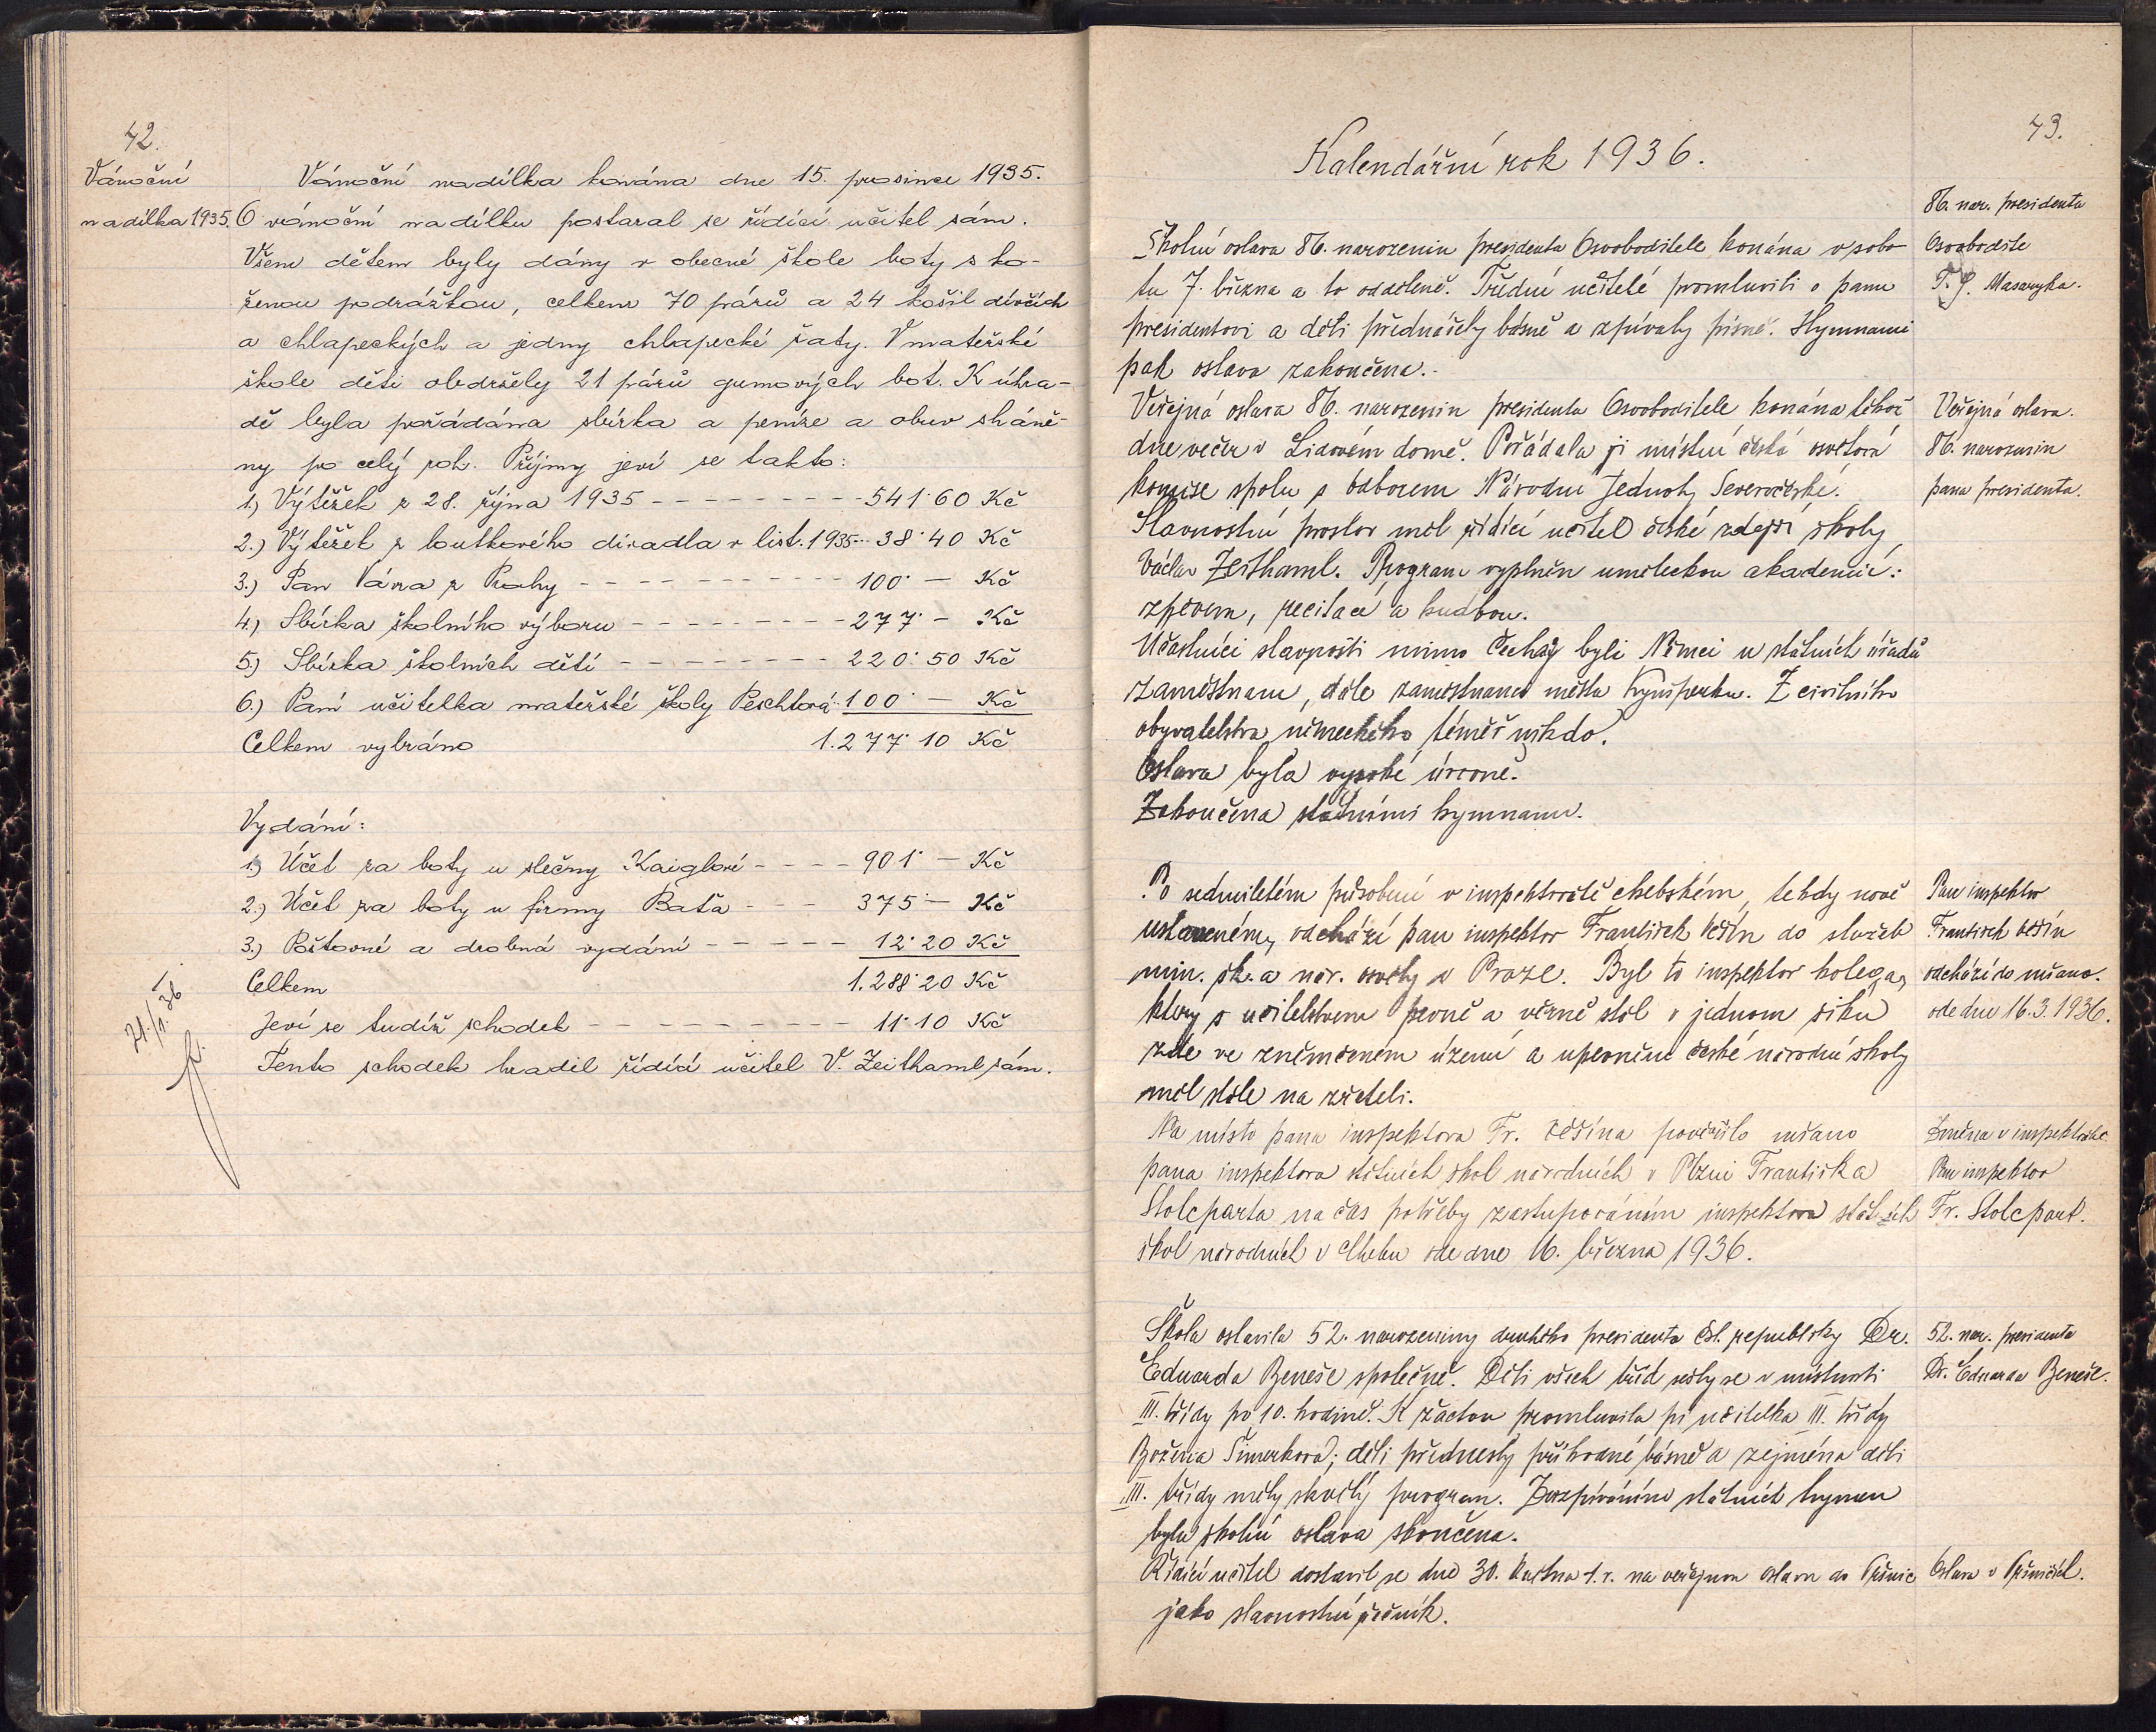 42.
Vánoční
nadílka 1935.
Vánoční nadílka konána dne 15. prosince 1935.
O vánoční nadílku postaral se řídící učitel sám.
Všem dětem byly dány v obecné škole boty s ko-
ženou podrážkou, celkem 70 párů a 24 košil dívčích
a chlapeckých a jedny chlapecké šaty. V mateřské
škole děti obdržely 21 párů gumových bot. K úhra-
dě byla pořádána sbírka a peníze a obuv sháně-
ny po celý rok. Příjmy jeví se takto:
1.) Výtěžek z 28. října 1935 - - - - - - - - 541·60 Kč
2.) Výtěžek z loutkového divadla v list. 1935 --- 38·40 Kč
3.) Pan Vávra z Prahy - - - - - - - - - - 100· — Kč
4.) Sbírka školního výboru - - - - - - - - - 277· — Kč
5.) Sbírka školních dětí - - - - - - - - 220·50 Kč
6.) Paní učitelka mateřské školy Peschtová 100· — Kč
Celkem vybráno 1.277·10 Kč
Vydání:
1.) Účet za boty u slečny Kaiglové - - - - 901· — Kč
2.) Účet za boty u firmy Baťa - - - 375 — Kč
3.) Poštovné a drobná vydání - - - - - 12·20 Kč
Celkem 1.288·20 Kč
Jeví se tudíž schodek - - - - - - - - - 11·10 Kč
Tento schodek hradil řídící učitel V. Zeithaml sám.
43.
Kalendářní rok 1936.
86. nar. presidenta
Osvobodite
T. G. Masaryka.
Školní oslava 86. narozenin presidenta Osvoboditele konána v sobo-
tu 7. března a to odděleně. Třídní učitelé promluvili o panu
presidentovi a děti přednášely básně a zpívaly písně. Hymnami
pak oslava zakončena.
Veřejná oslava.
86. narozenin
pana presidenta.
Veřejná oslava 86. narozenin presidenta Osvoboditele konána téhož
dne večer v Lidovém domě. Pořádala ji místní česká osvětová
komise spolu s odborem Národní Jednoty Severočeské.
Slavnostní proslov měl řídící učitel české zdejší školy
Václav Zeithaml. Program vyplněn uměleckou akademií:
zpěvem, recitací a hudbou.
Účastníci slavnosti mimo Čechy byli Němci u státních úřadů
zaměstnaní, dále zaměstnanci města Kynšperku. Z civilního
obyvatelstva německého téměř nikdo.
Oslava byla vysoké úrovně.
Zakončena státními hymnami.
Pan inspektor
František Věšín
odchází do mšano.
ode dne 16.3.1936.
Po sedmiletém působení v inspektorátě chebském, tehdy nově
ustaveném, odchází pan inspektor František Věšín do služeb
min. šk. a nár. osvěty v Praze. Byl to inspektor kolega,
který s učitelstvem pevně a věrně stál v jednom šiku
zde ve zněmčeném území a upevnění české národní školy
měl stále na zřeteli.
Změna v inspektorátě
Pan inspektor
Fr. Stolcpart.
Na místo pana inspektora Fr. Věšína pověřilo mšano
pana inspektora státních škol národních v Plzni Františka
Stolcparta na čas potřeby zastupováním inspektora státních
škol národních v Chebu ode dne 16. března 1936.
52. nar. presidenta
Dr. Eduarda Beneše.
Škola oslavila 52. narozeniny druhého presidenta čsl. republiky Dr.
Eduarda Beneše společně. Děti všech tříd sešly se v místnosti
III. třídy po 10. hodině. K žactvu promluvila pí učitelka III. třídy
Božena Šimerková; děti přednesly příhodné básně a zejména děti
III. třídy měly skvělý program. Zazpíváním státních hymen
byla školní oslava skončena.
Oslava v
Řídící učitel dostavil se dne 30. května t. r. na veřejnou oslavu do
jako slavnostní řečník.